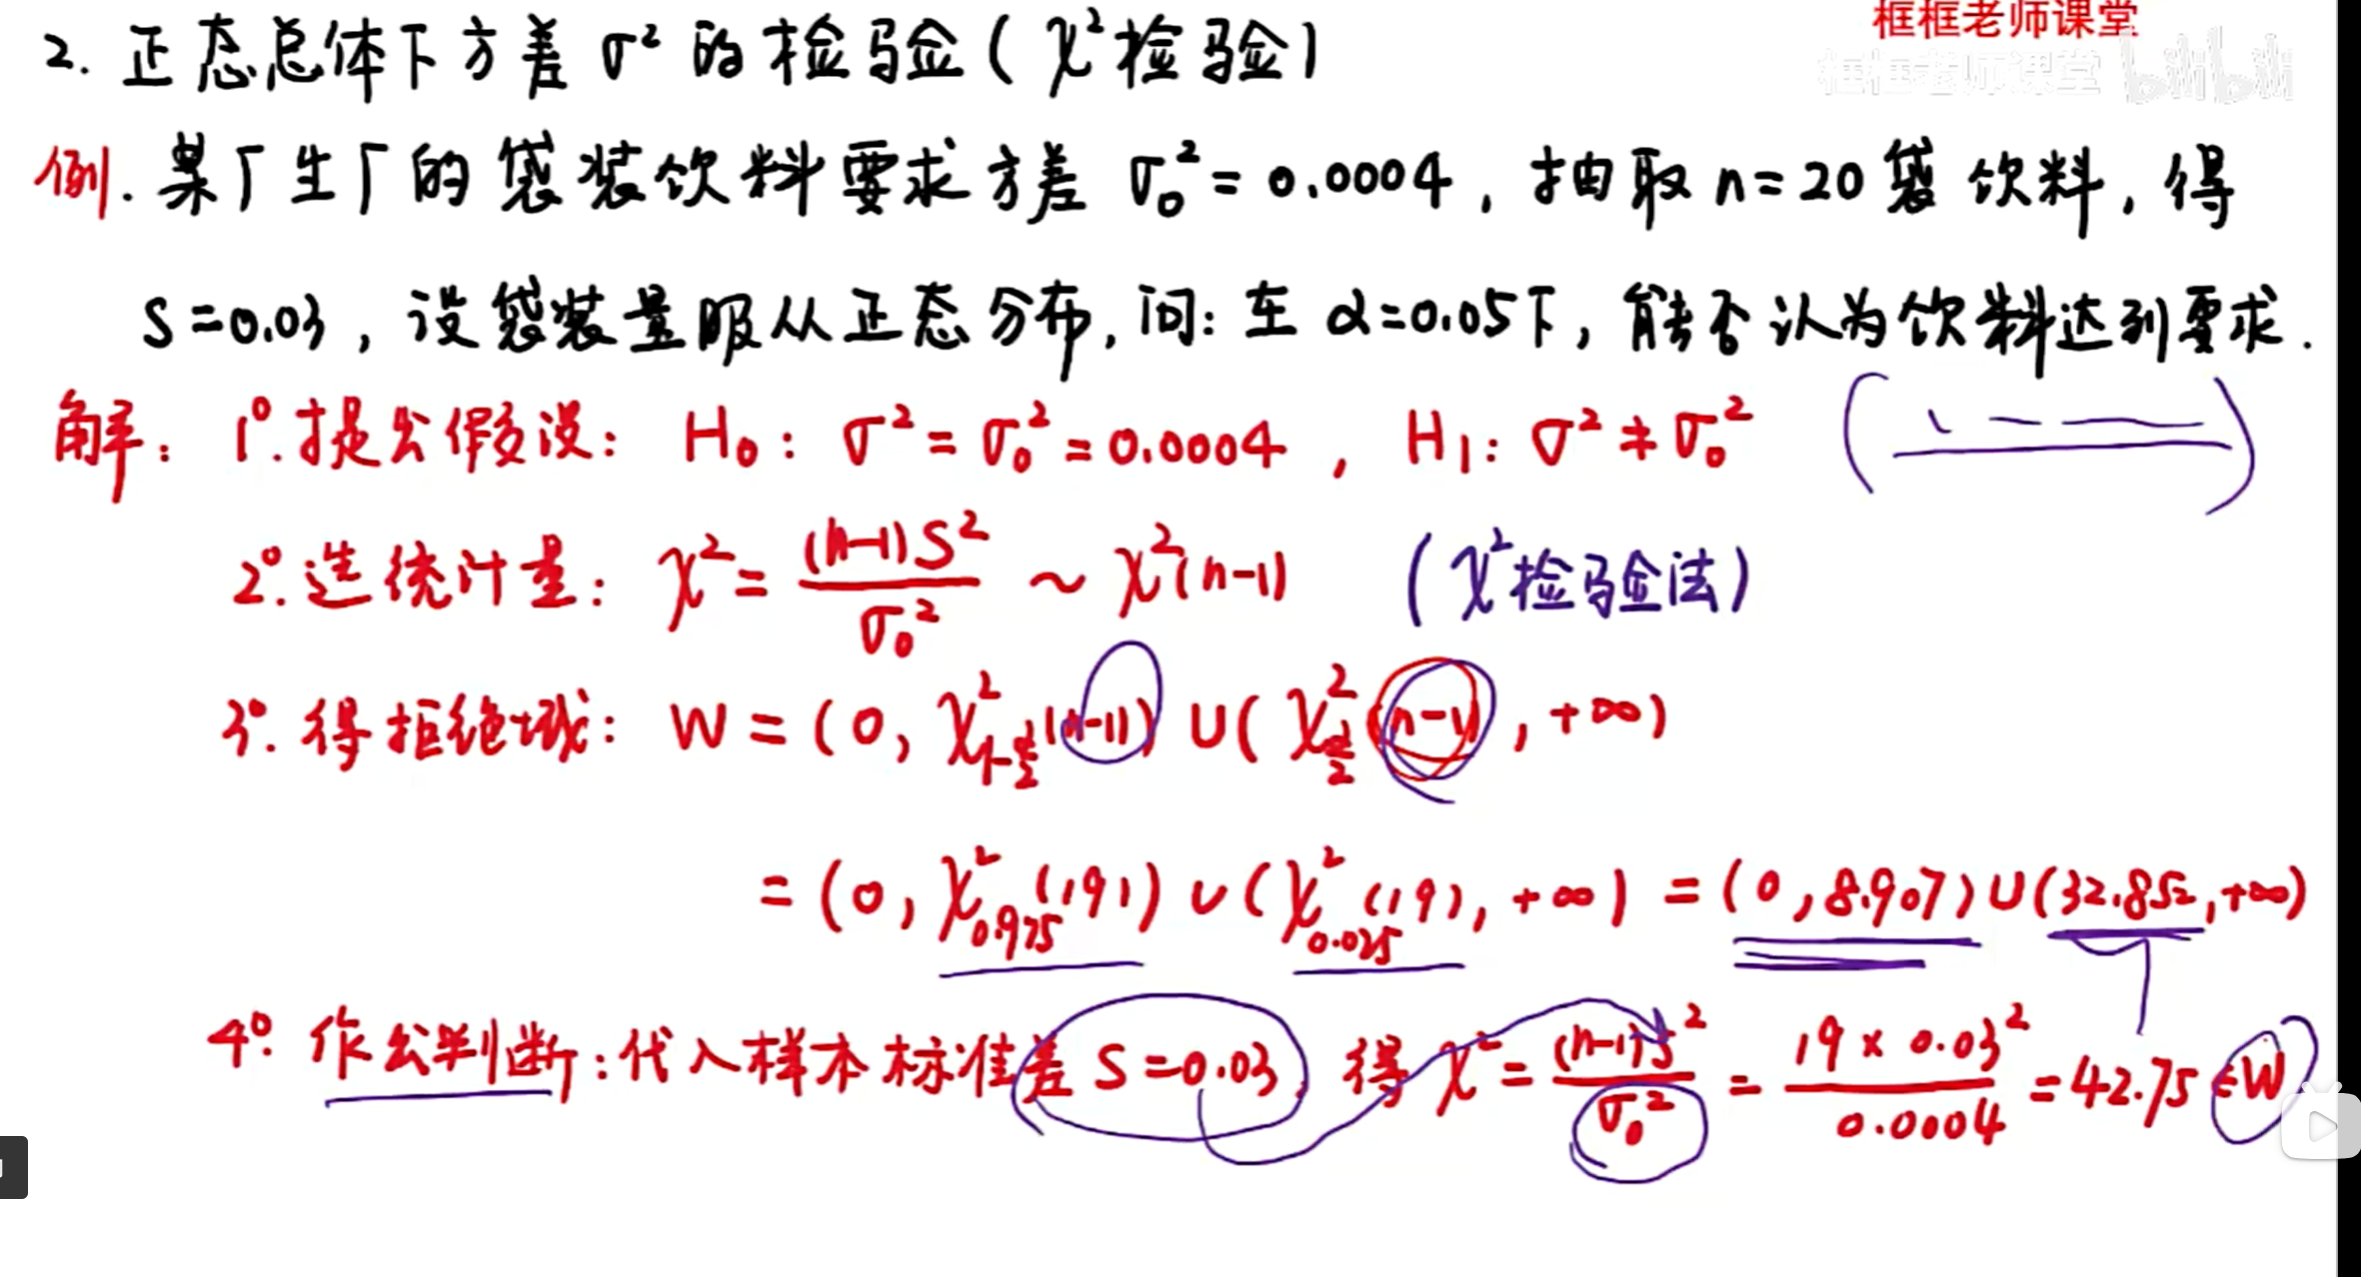 框框老师课堂
框框老师课堂 bilibili
2. 正态总体下方差 σ² 的检验(χ²检验)
例. 某厂生厂的袋装饮料要求方差 σ₀² = 0.0004, 抽取 n=20 袋饮料, 得
S=0.03, 设袋装量服从正态分布, 问: 在 α=0.05下, 能否认为饮料达到要求.
解: 1°. 提出假设: H₀: σ² = σ₀² = 0.0004, H₁: σ² ≠ σ₀²
2°. 选统计量: χ² = (n-1)S²/σ₀² ~ χ²(n-1) (χ²检验法)
3°. 得拒绝域: W = (0, χ²_{1-α/2}(n-1)) U (χ²_{α/2}(n-1), +∞)
= (0, χ²_{0.975}(19)) U (χ²_{0.025}(19), +∞) = (0, 8.907) U (32.852, +∞)
4°. 作出判断: 代入样本标准差 S=0.03, 得 χ² = (n-1)S²/σ₀² = 19×0.03²/0.0004 = 42.75 ∈ W